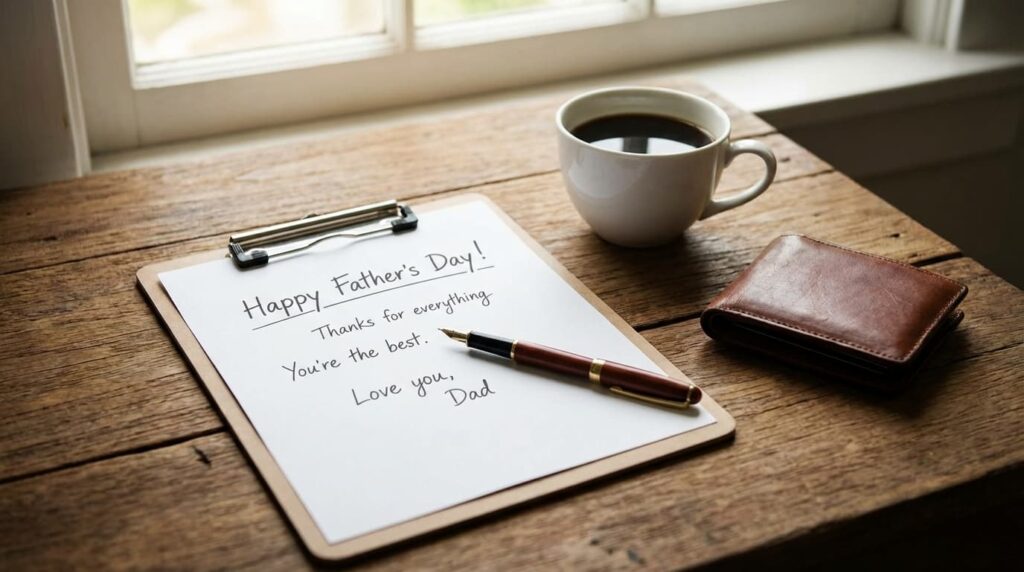 Happy Father's Day!
Thanks for everything
You're the best.
Love you,
Dad